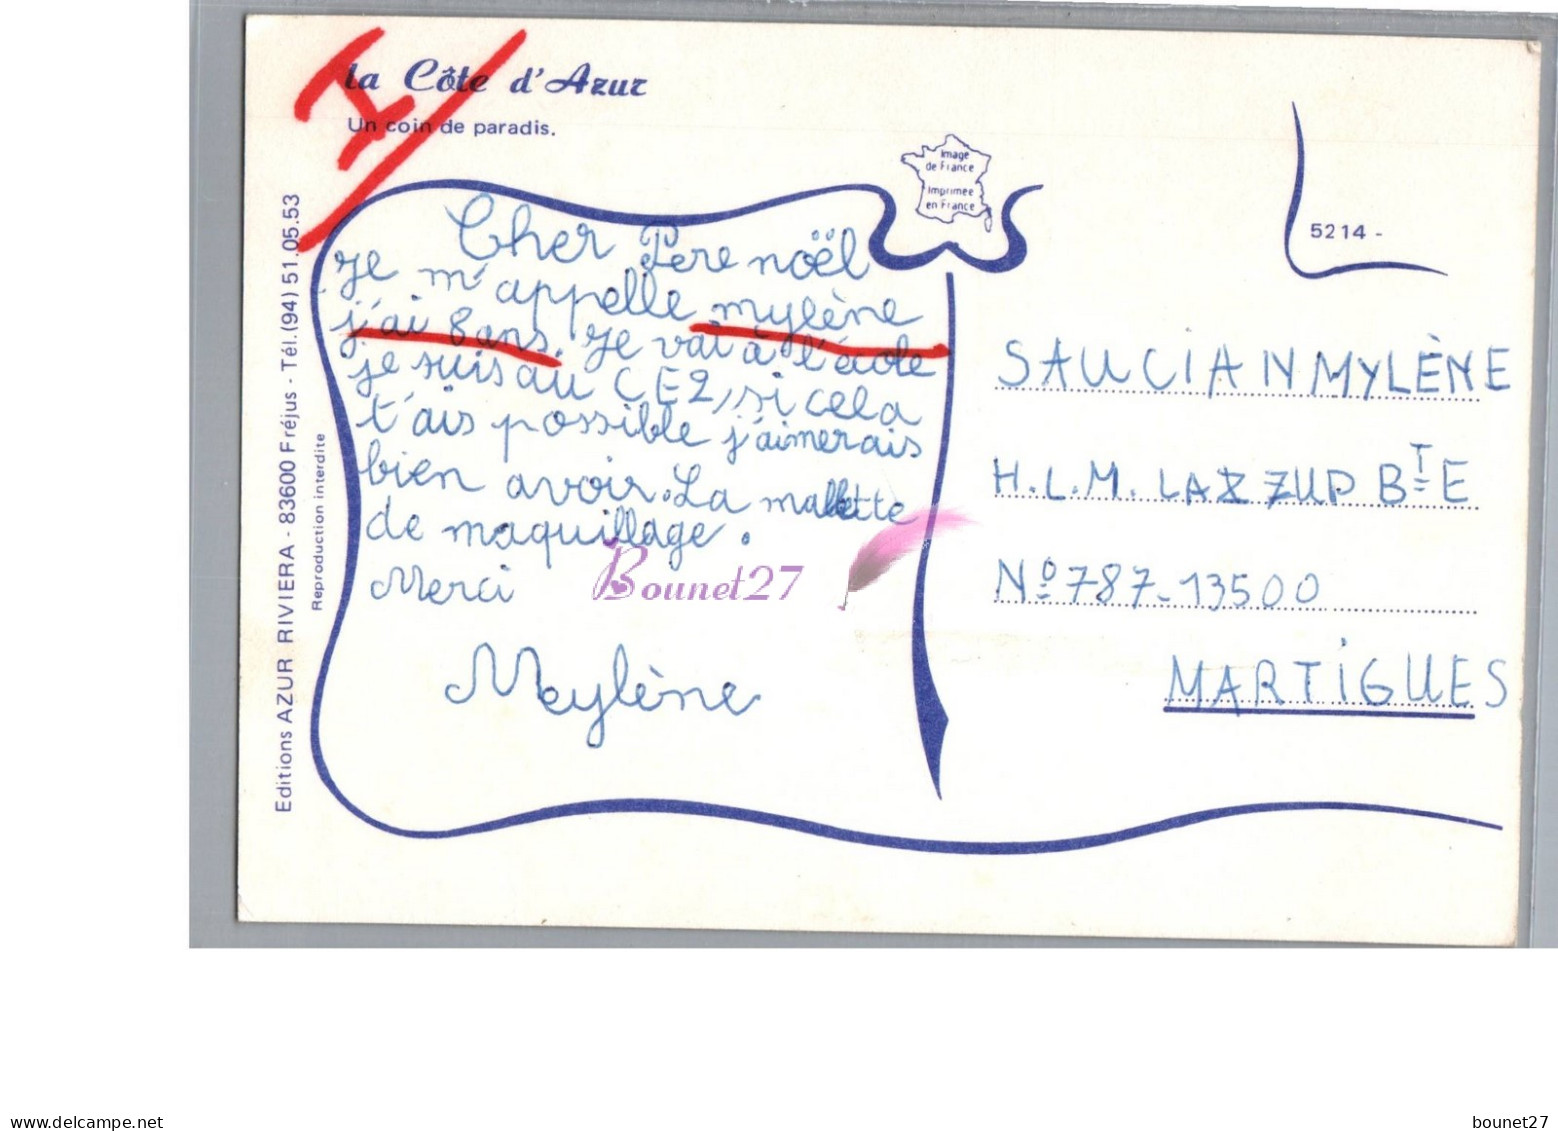 la Côte d'Azur
Un coin de paradis.
Image
de France
Imprimée
en France
5214 -
Editions AZUR RIVIERA - 83600 Fréjus - Tél. (94) 51.05.53
Reproduction interdite
Cher Père noël
Je m'appelle mylène
j'ai 8 ans. Je vai à l'école
je suis au CE2, si cela
t'ais possible j'aimerais
bien avoir. La mallette
de maquillage.
Merci
Mylène
SAUCIAN MYLÈNE
H.L.M. ZUP BT E
Nº 787-13500
MARTIGUES
Bounet27
www.delcampe.net
bounet27